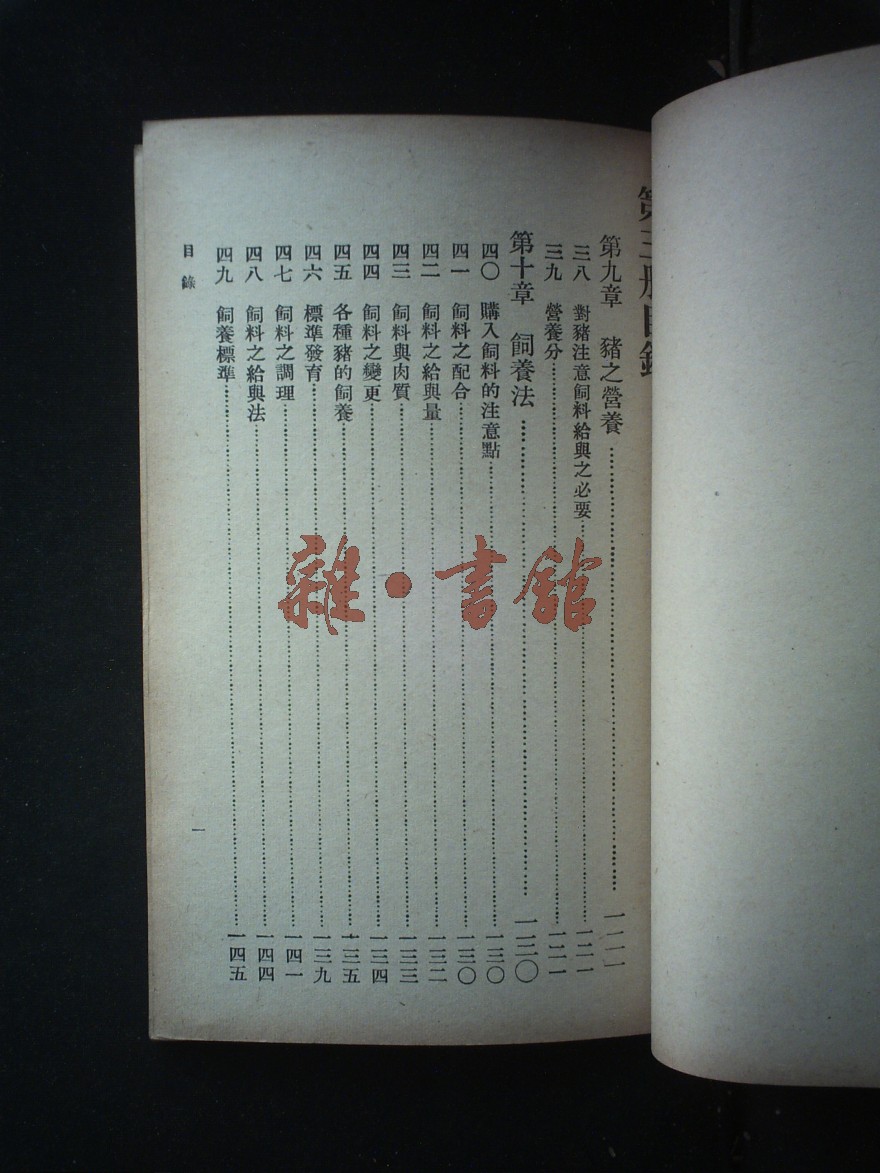 第三册目錄
第九章 豬之營養……一二一
三八 對豬注意飼料給與之必要……一二一
三九 營養分……
第十章 飼養法……一三〇
四〇 購入飼料的注意點……一三〇
四一 飼料之配合……一三〇
四二 飼料之給與量……一三二
四三 飼料與肉質……一三三
四四 飼料之變更……一三四
四五 各種豬的飼養……一三五
四六 標準發育……一三九
四七 飼料之調理……一四一
四八 飼料之給與法……一四四
四九 飼養標準……一四五
目錄
一
雜·書館